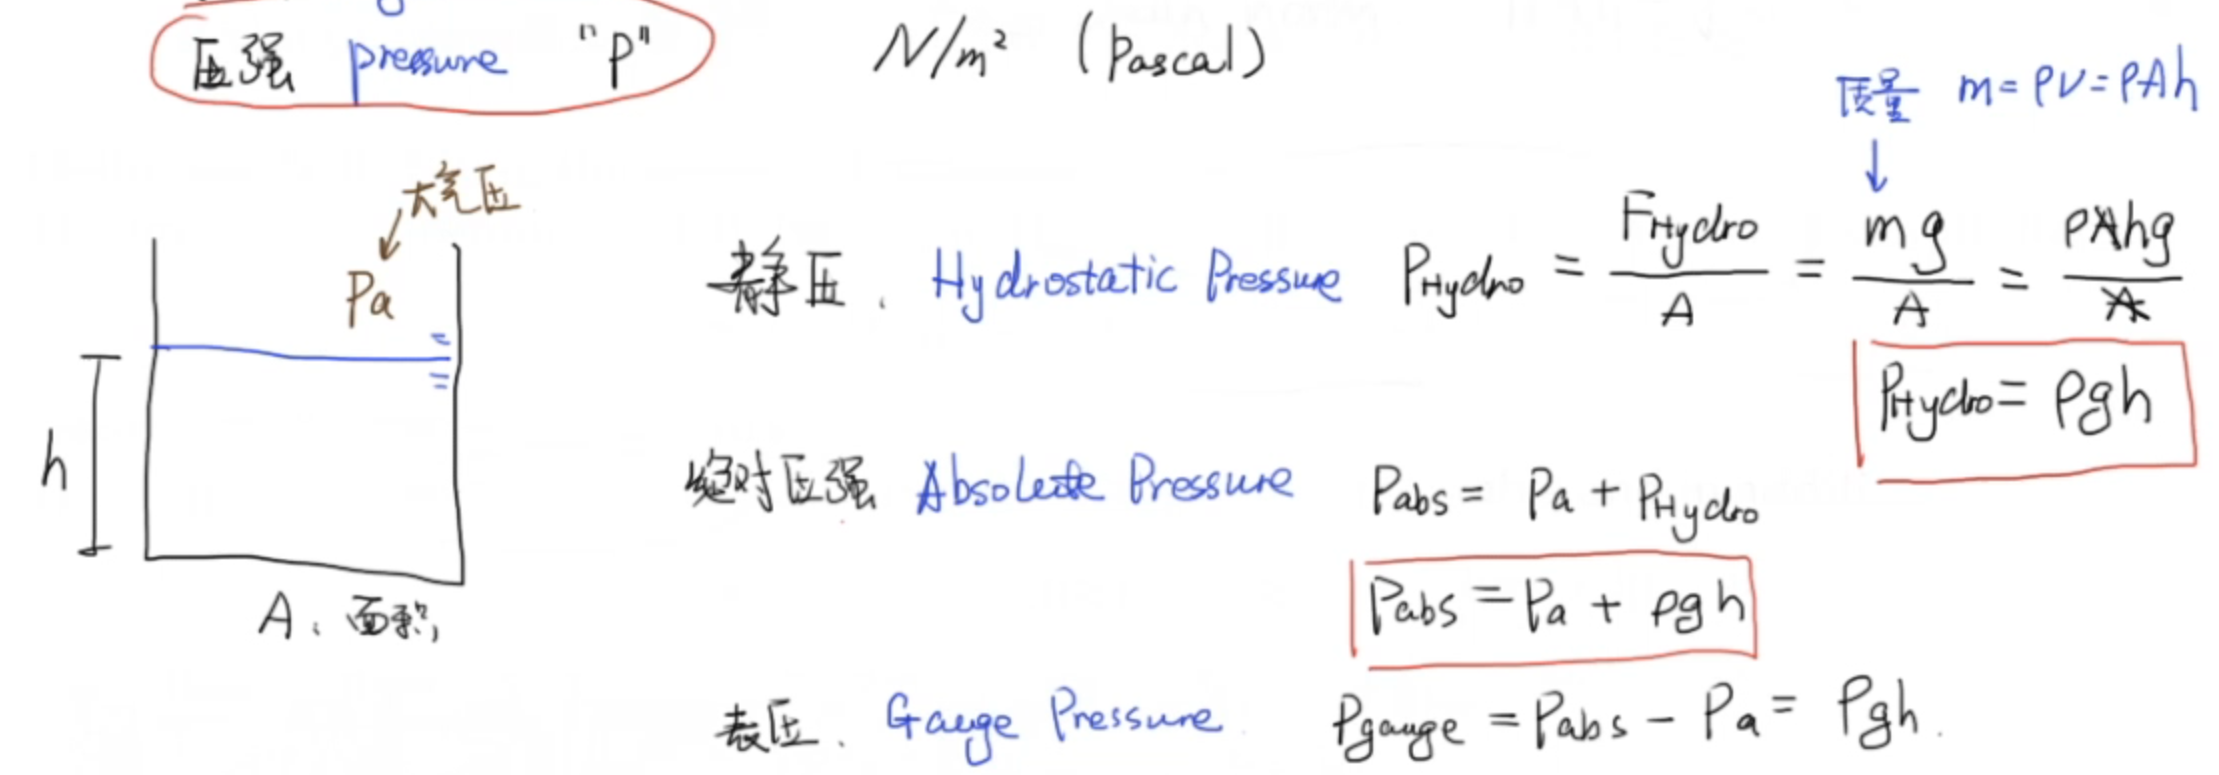 压强 pressure "P" N/m² (Pascal)
质量 m = ρV = ρAh
大气压
Pa
静压. Hydrostatic Pressure P_Hydro = F_Hydro/A = mg/A = ρAhg/A
P_Hydro = ρgh
h
绝对压强 Absolute Pressure Pabs = Pa + P_Hydro
Pabs = Pa + ρgh
A. 面积
表压. Gauge Pressure Pgauge = Pabs - Pa = ρgh.